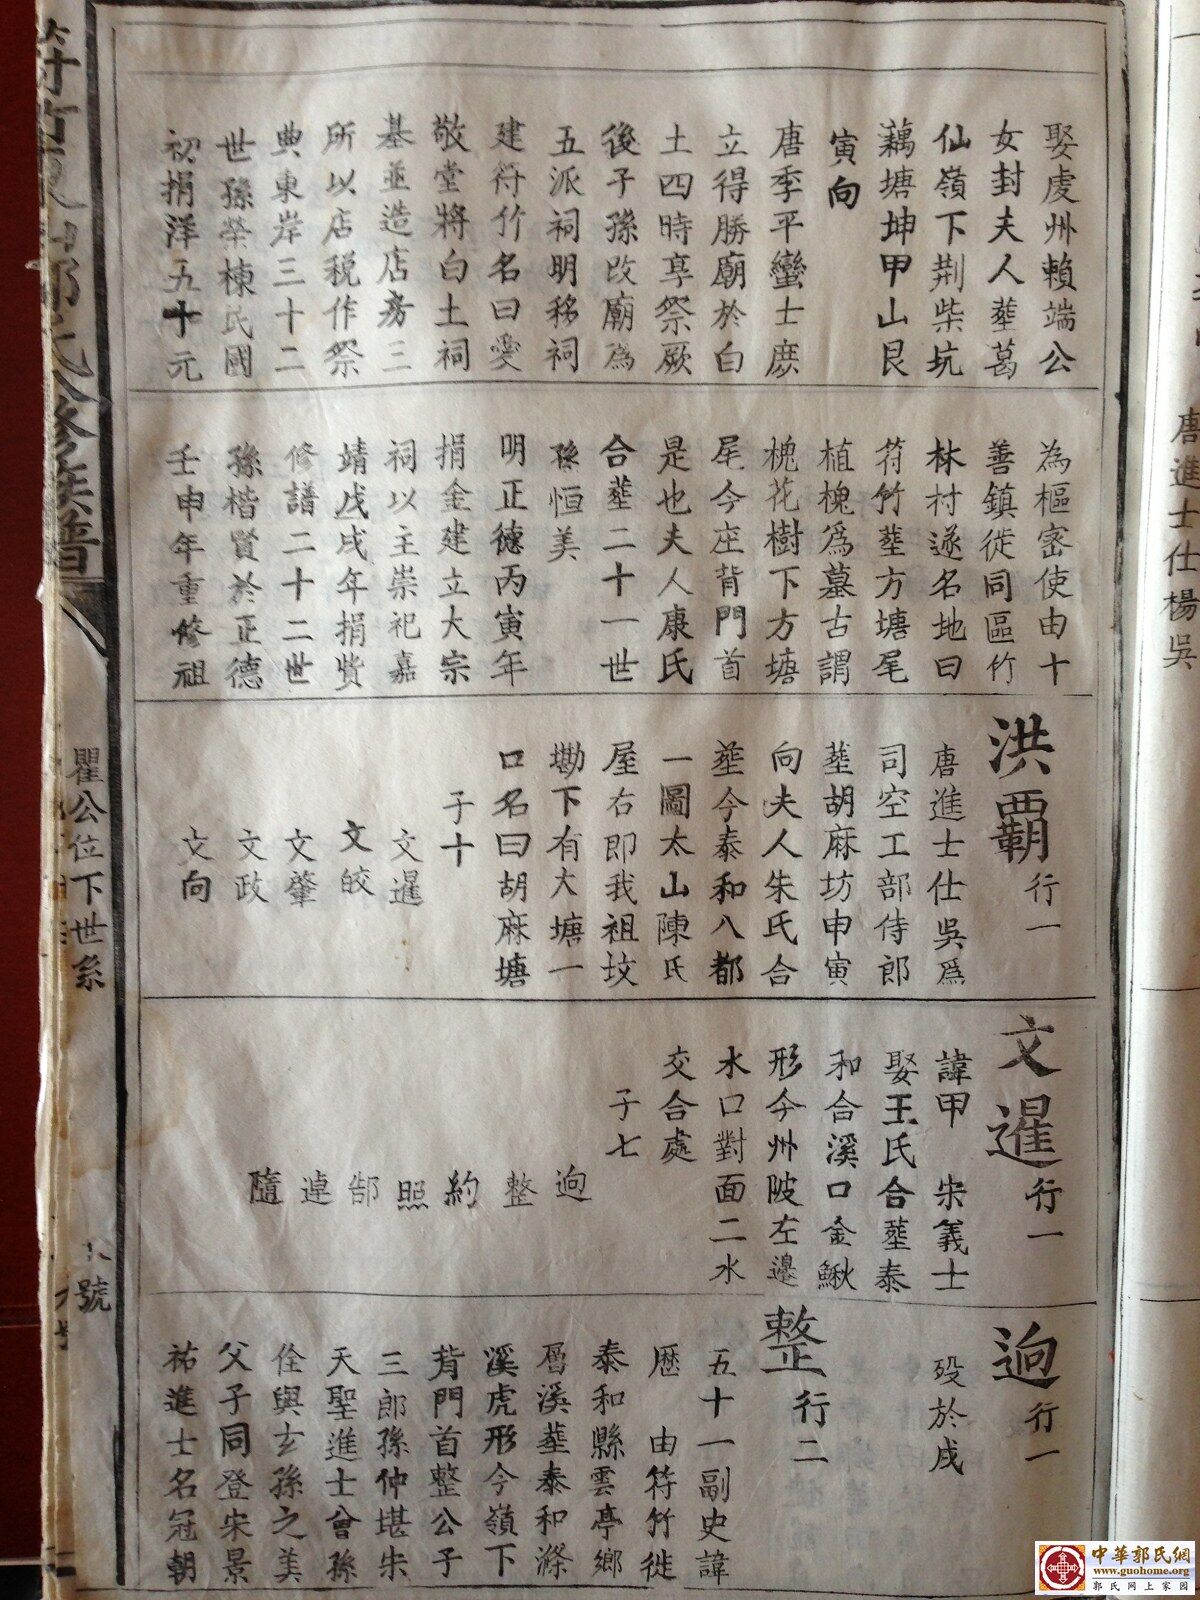 娶虔州賴端公
女封夫人葬葛
仙嶺下荆柴坑
藕塘坤甲山艮
寅向
唐季平蠻士庶
立得勝廟於白
土四時享祭厥
後子孫改廟為
五派祠明移祠
建符竹名曰愛
敬堂將白土祠
基並造店房三
所以店税作祭
典東岸三十二
世孫榮棟民國
初捐洋五十元
為樞密使由十
善鎮徙同區竹
林村遂名地曰
符竹葬方塘尾
植槐爲墓古謂
槐花樹下方塘
尾今庄背門首
是也夫人康氏
合葬二十一世
孫恒美
明正德丙寅年
捐金建立大宗
祠以主崇祀嘉
靖戊戌年捐貲
修譜二十二世
孫楷賢於正德
壬申年重修祖
洪覇行一
唐進士仕吳爲
司空工部侍郎
葬胡麻坊申寅
向夫人朱氏合
葬今泰和八都
一圖太山陳氏
屋右即我祖坟
墈下有大塘一
口名曰胡麻塘
子十
文暹
文皎
文肇
文政
文向
文暹行一
諱甲 宋義士
娶王氏合葬泰
和合溪口金鰍
形今州陂左邊
水口對面二水
交合處
子七
逈 整 約 照 郜 連 隨
逈行一
殁於戌
整行二
五十一副史諱
歷 由符竹徙
泰和縣雲亭鄉
層溪葬泰和滌
溪虎形今嶺下
背門首整公子
三郎孫仲堪宋
天聖進士曾孫
佺與玄孫之美
父子同登宋景
祐進士名冠朝
郭氏八修族譜
瞿公位下世系
號
唐進士仕楊吳
中華郭氏網
www.guohome.org
郭氏网上家园